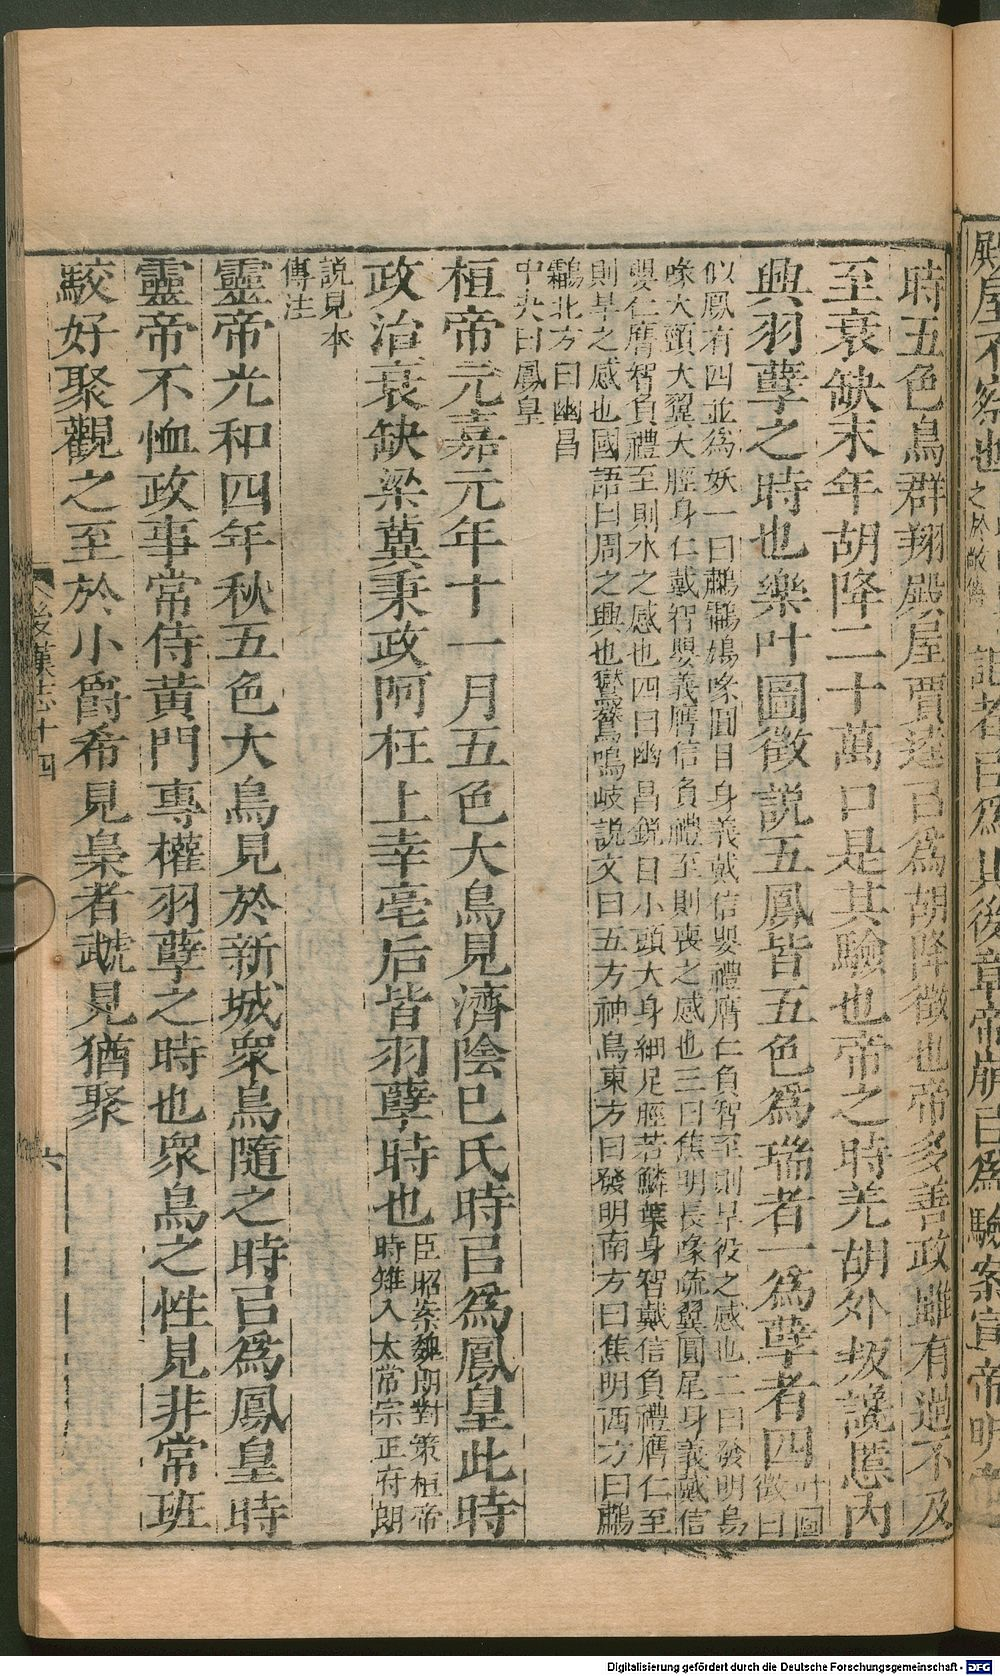 殿屋不察也記者㠯爲其後章帝崩㠯爲驗案宣帝明帝
時五色鳥群翔殿屋賈逵㠯爲胡降徵也帝多善政雖有過不及
至衰缺末年胡降二十萬口是其驗也帝之時羌胡外叛讒慝內
興羽孽之時也樂叶圖徵説五鳳皆五色爲瑞者一爲孽者四
叶圖
徵曰
似鳳有四並爲妖一曰鷫鸘鳩喙圓目身義戴信嬰禮膺仁負智至則旱役之感也二曰發明鳥
喙大頸大翼大脛身仁戴智嬰義膺信負禮至則喪之感也三曰焦明長喙疏翼圓尾身義戴信
嬰仁膺智負禮至則水之感也四曰幽昌銳目小頭大身細足脛若鱗葉身智戴信負禮膺仁至
則旱之感也國語曰周之興也鸑鷟鳴岐説文曰五方神鳥東方曰發明南方曰焦明西方曰鷫
鸘北方曰幽昌
中央曰鳳皇
桓帝元嘉元年十一月五色大鳥見濟陰巳氏時㠯爲鳳皇此時
政治衰缺梁冀秉政阿枉上幸亳后皆羽孽時也
臣昭案魏朗對策桓帝
時雉入太常宗正府朗
説見本
傳注
靈帝光和四年秋五色大鳥見於新城衆鳥隨之時㠯爲鳳皇時
靈帝不恤政事常侍黃門專權羽孽之時也衆鳥之性見非常班
駮好聚觀之至於小爵希見梟者虣見猶聚
後漢志十四
六
Digitalisierung gefördert durch die Deutsche Forschungsgemeinschaft - DFG